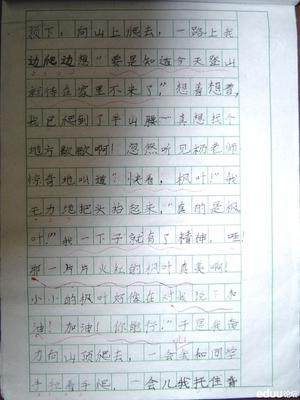 顶下，向山上爬去，一路上我
边爬边想"要是知道今天登山
就待在家里不来了，"想着想着，
我已爬到了半山腰一真想找个
地方歇歇啊！忽然听见奶老师
惊奇地叫道："快看，枫叶！"我
毛力抱把头抬起来，"真的是枫
叶！"我一下子就有了精神，哇！
那一片片火红的枫叶真美啊！
小小的枫叶好像在对我说："加
油！加油！你能行！"于是我奋
力向山顶爬去，一会我如同空
手抱着手爬，一会儿我托住膏
eduu